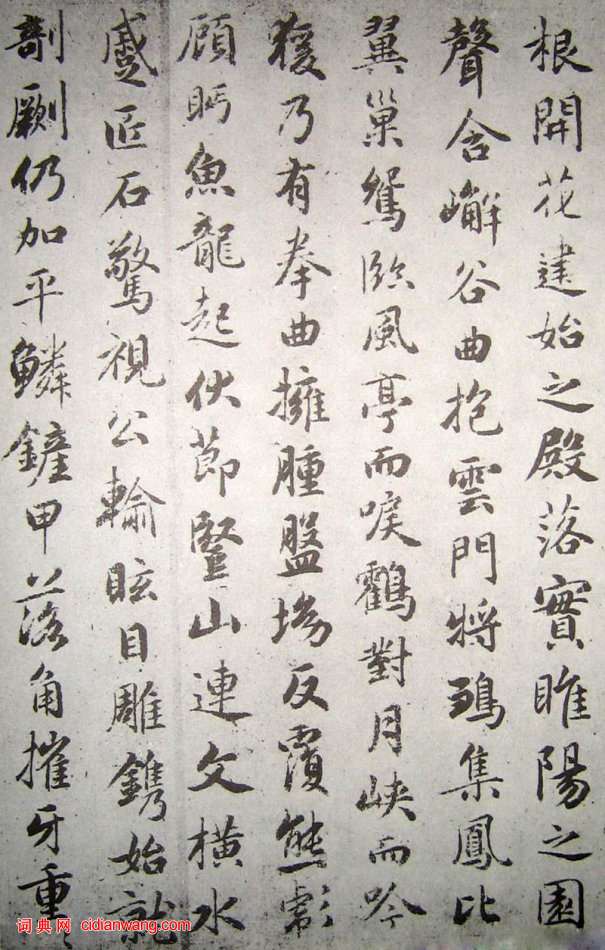 根開花建始之殿落實睢陽之園
聲含嶰谷曲抱雲門將鶵集鳳比
翼巢鴛臨風亭而唳鶴對月峽而吟
猨乃有拳曲擁腫盤坳反覆熊彪
顧眄魚龍起伏節豎山連文橫水
蹙匠石驚視公輸眩目雕鐫始就
剞劂仍加平鱗鏟甲落角摧牙重〻
词典网 cidianwang.com